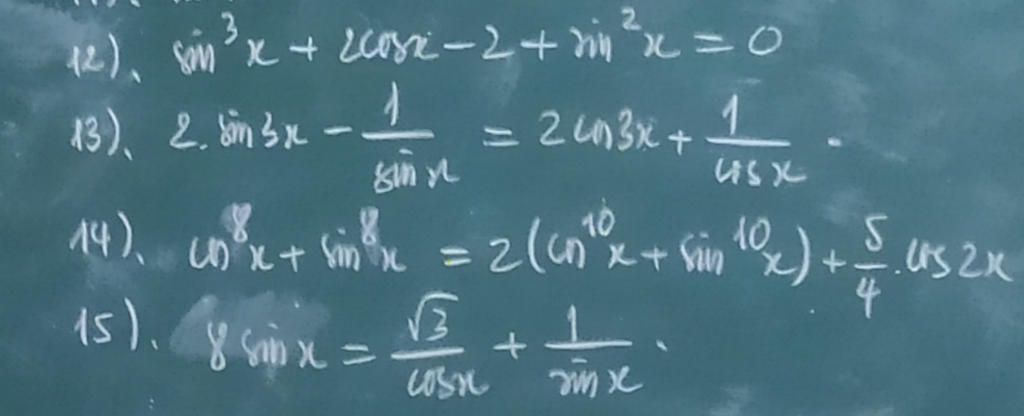 12). sin³x + 2cosx - 2 + sin²x = 0
13). 2.sin3x - 1/sinx = 2cos3x + 1/cosx .
14). cos⁸x + sin⁸x = 2(cos¹⁰x + sin¹⁰x) + 5/4.cos2x
15). 8sinx = √3/cosx + 1/sinx .